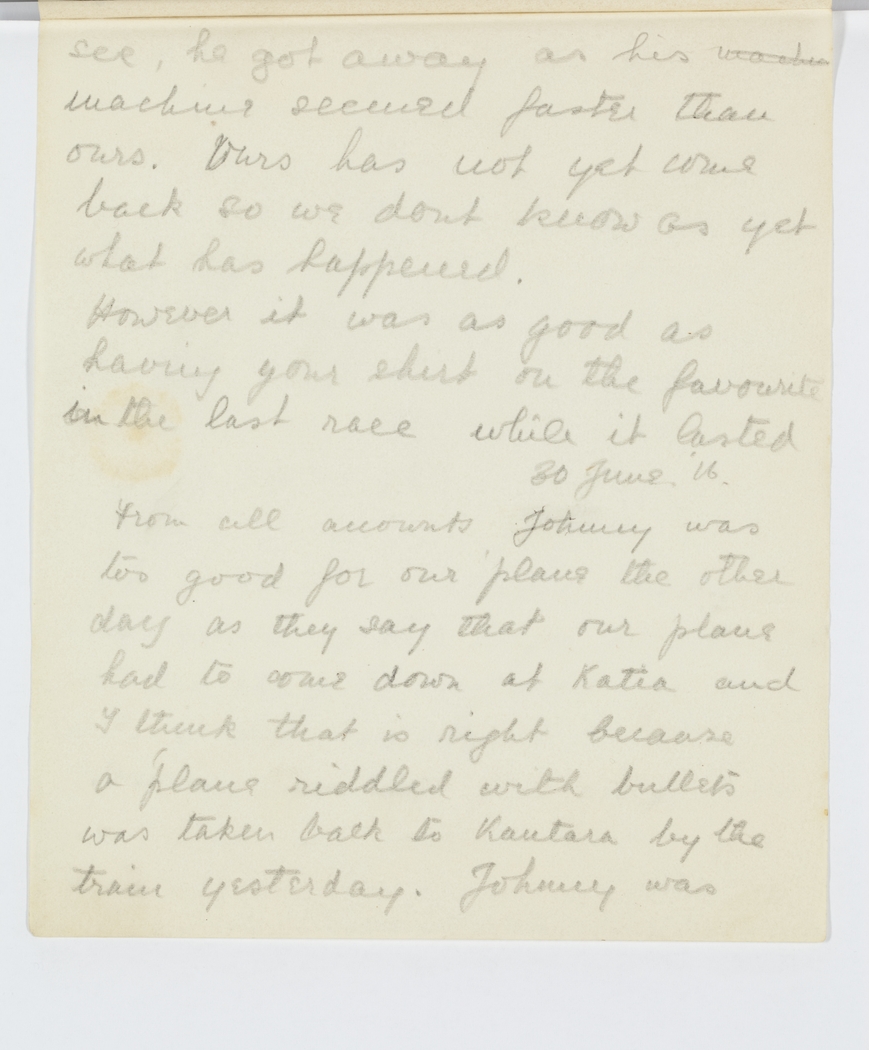 see, he got away as his machin
machine seemed faster than
ours. Ours has not yet come
back so we dont know as yet
what has happened.
However it was as good as
having your shirt on the favourite
in the last race while it lasted
30 June. '16.
From all accounts Johnny was
too good for our 'plane the other
day as they say that our plane
had to come down at Katia and
I think that is right because
a 'plane riddled with bullets
was taken back to Kantara by the
train yesterday. Johnny was